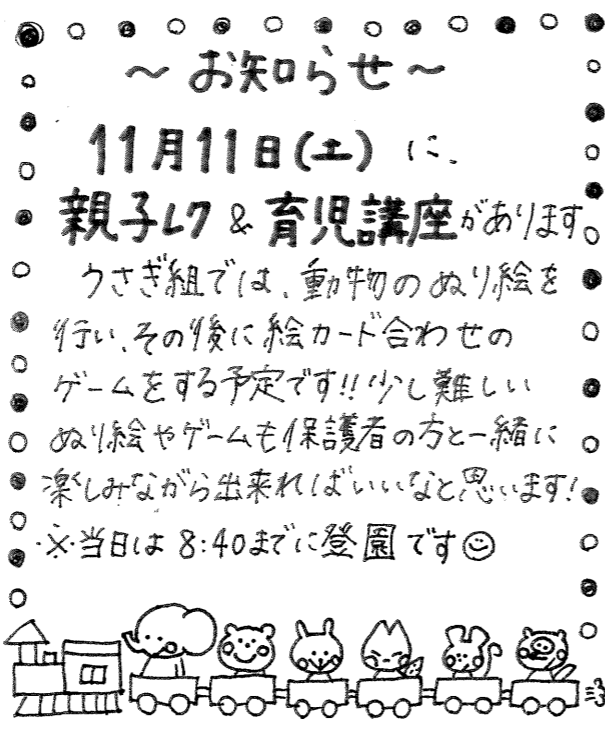 ～お知らせ～
11月11日(土)に、
親子レク&育児講座があります。
うさぎ組では、動物のぬり絵を
行い、その後に絵カード合わせの
ゲームをする予定です!!少し難しい
ぬり絵やゲームも保護者の方と一緒に
楽しみながら出来ればいいなと思います!
※当日は8:40までに登園です☺